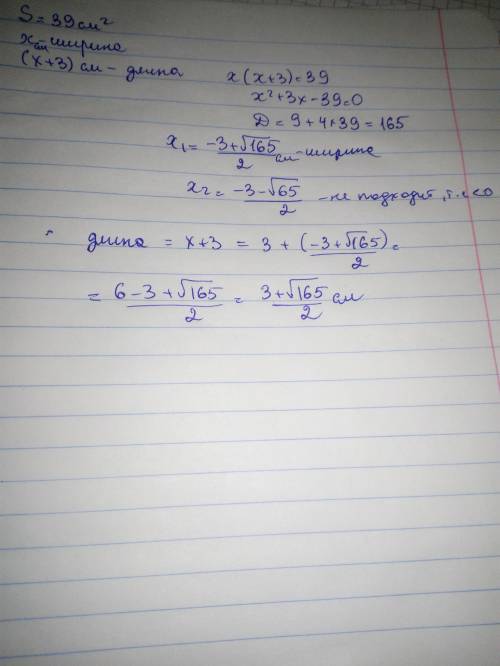 S = 39 см²
x см - ширина
(x+3) см - длина
x(x+3) = 39
x²+3x-39=0
D = 9+4*39 = 165
x₁ = (-3+√165)/2 см - ширина
x₂ = (-3-√65)/2 - не подходит, т.к <0
длина = x+3 = 3 + (-3+√165)/2 =
= (6-3+√165)/2 = (3+√165)/2 см